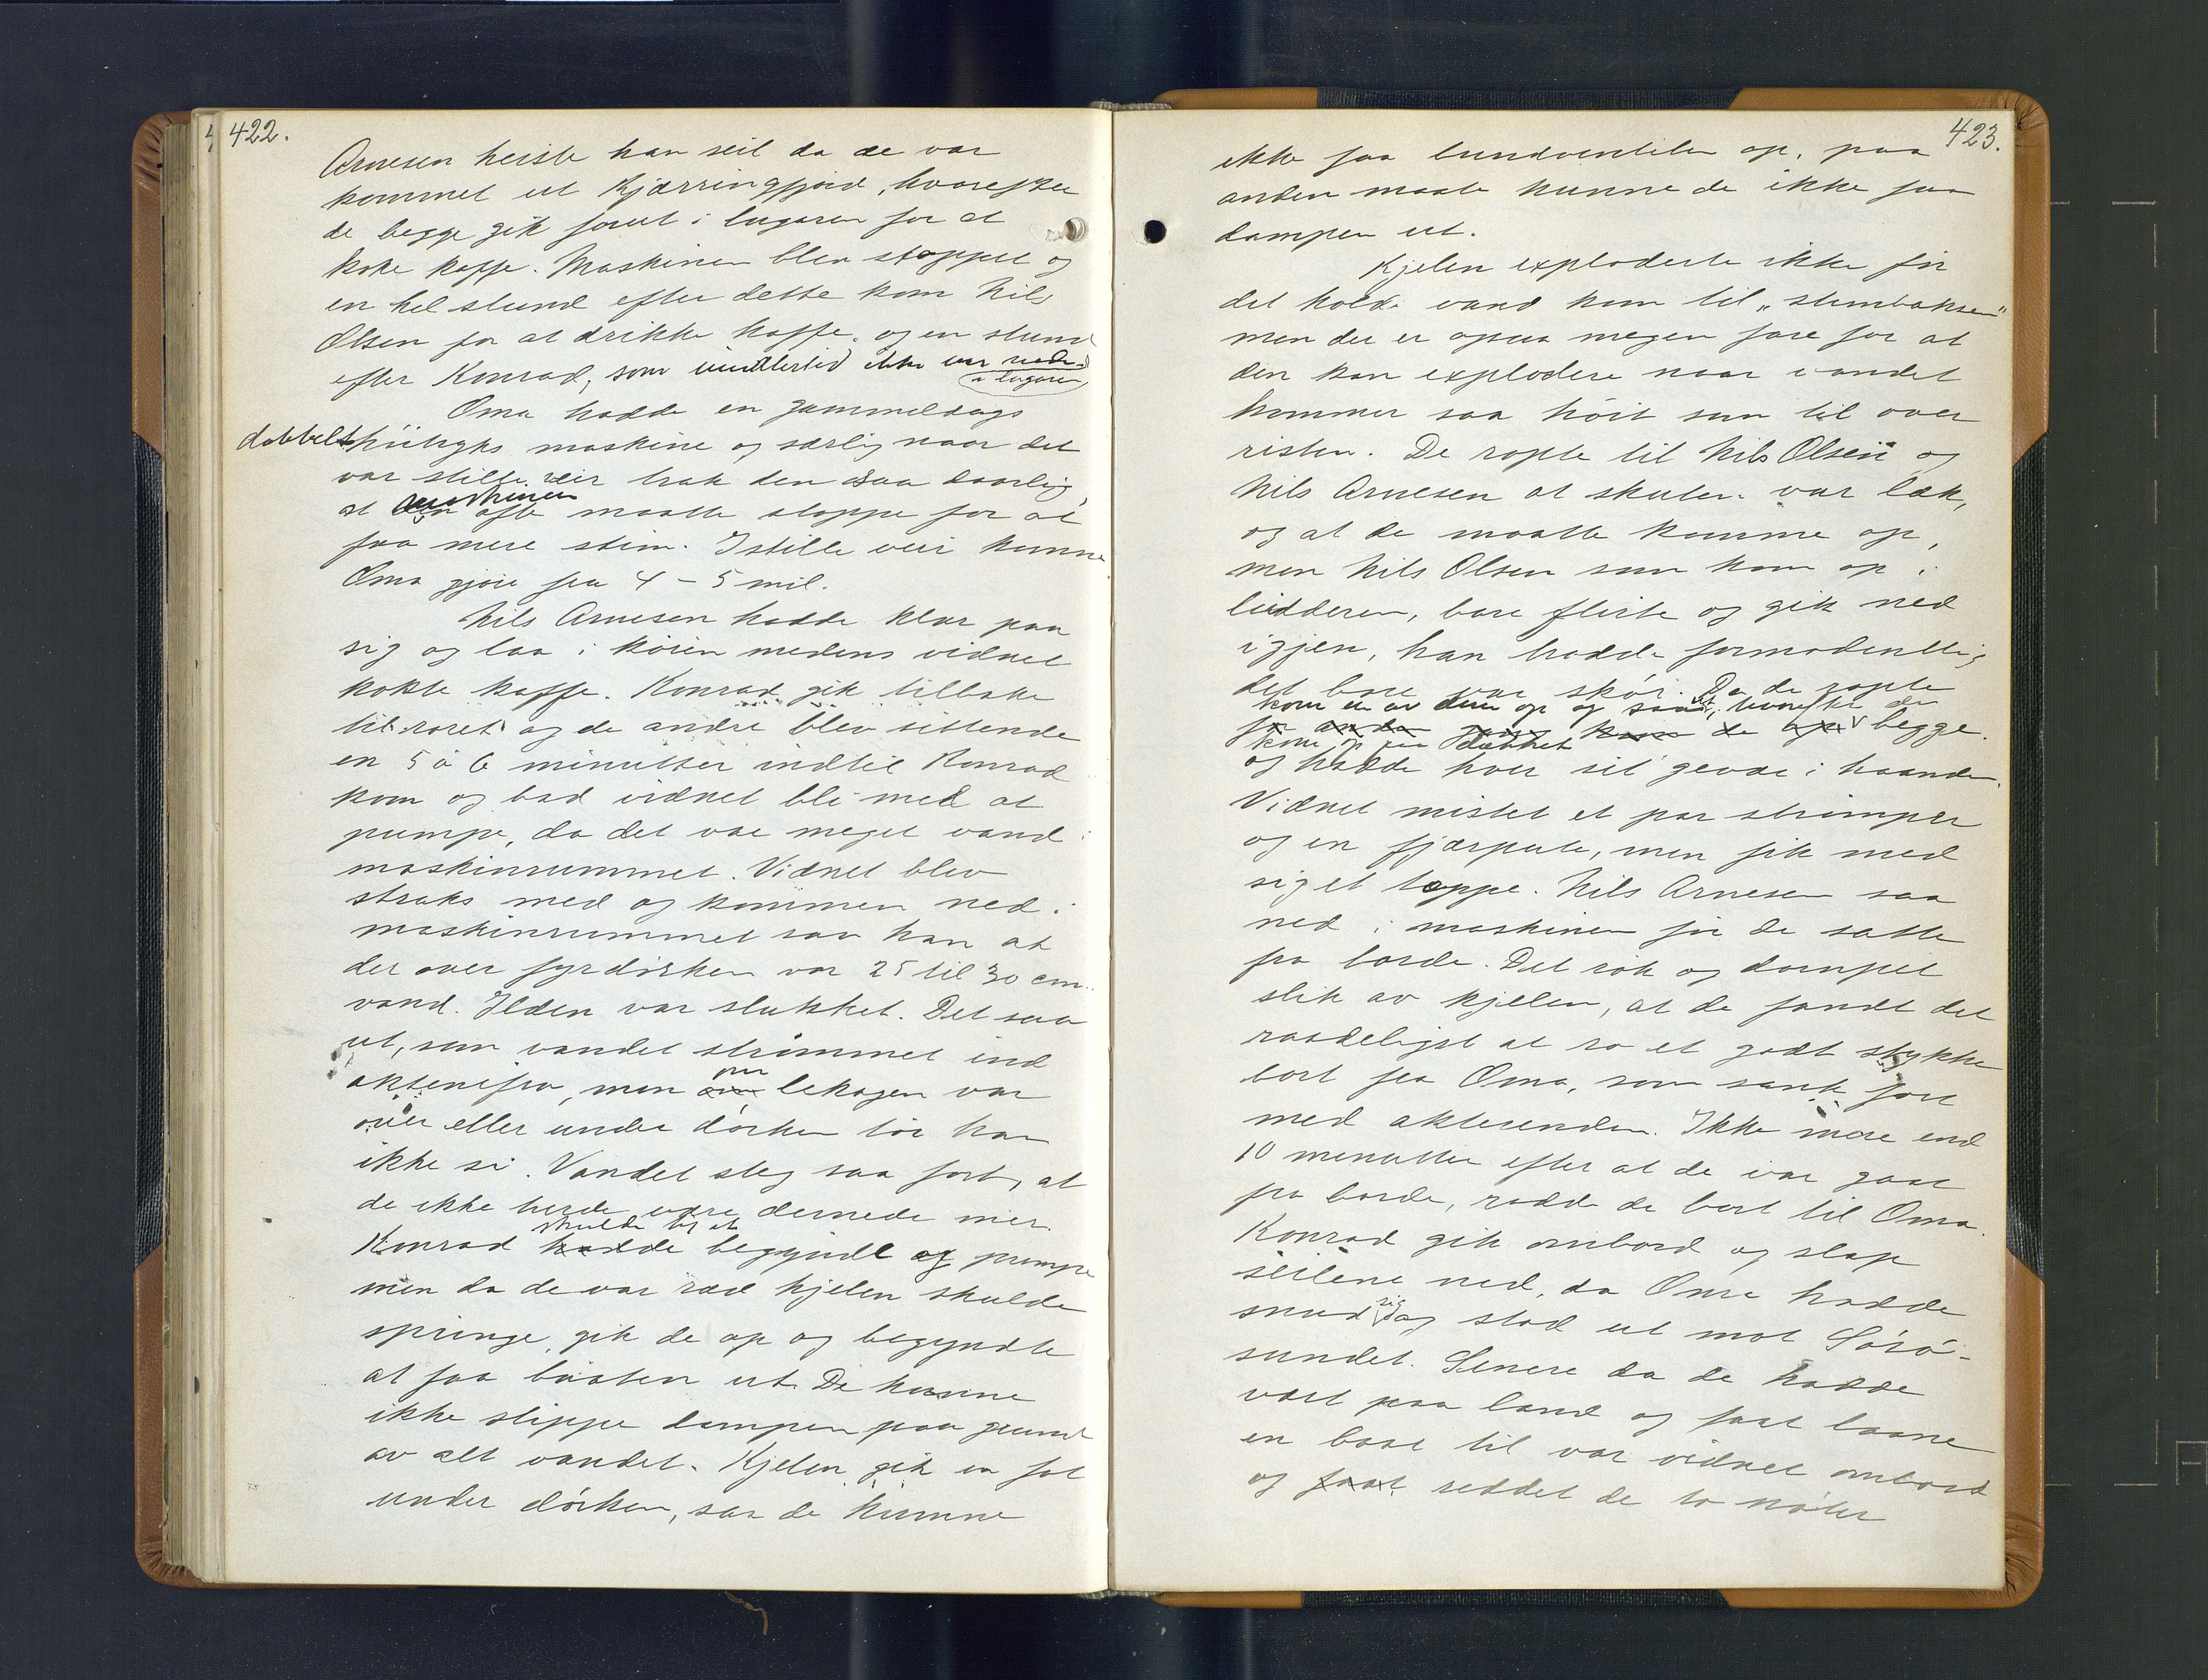 422.
Arnesen heiste han seil da de var
kommet ut Kjærringfjord, hvorefter
de begge gik forut i lugaren for at
koke kaffe. Maskinen blev stoppet og
en hel stund efter dette kom Nils
Olsen for at drikke kaffe. og en stund
efter Konrad, som imidlertid ikke var nede
i lugaren
Oma hadde en gammeldags
dobbelt høitryks maskine og særlig naar det
var stille veir trak den saa daarlig,
maskinen
at den ofte maatte stoppe for at
faa mere stim. I stille veir kunne
Oma gjøre fra 4 - 5 mil.
Nils Arnesen hadde klær paa
sig og laa i køien medens vidnet
kokte kaffe. Konrad gik tilbake
til roret og de andre blev sittende
en 5 à 6 minutter indtil Konrad
kom og bad vidnet bli med at
pumpe, da det var meget vand i
maskinrummet. Vidnet blev
straks med og kommen ned i
maskinrummet saa han at
der over fyrdørken var 25 til 30 cm.
vand. Ilden var slukket. Det saa
ut, som vandet strømmet ind
aktenifra, men om lekagen var
over eller under dørken tør han
ikke si. Vandet steg saa fort, at
de ikke turde være dernede mer.
skulde til at
Konrad hadde begyndt og pumpe
men da de var ræd kjelen skulde
springe, gik de op og begyndte
at faa baaten ut. De kunne
ikke slippe dampen paa grund
av alt vandet. Kjelen gik en fot
under dørken, saa de kunne
423.
ikke faa bundventilen op, paa
anden maate kunne de ikke faa
dampen ut.
Kjelen exploderte ikke før
det kolde vand kom til "stimboksen"
men der er ogsaa megen fare for at
den kan explodere naar vandet
kommer saa høit som til over
risten. De ropte til Nils Olsen og
Nils Arnesen at skuten var læk,
og at de maatte komme op,
men Nils Olsen som kom op i
leideren, bare flirte og gik ned
igjen, han trodde formodentlig
det bare var skøi. Da de ropte
kom en av dem op og saa ut, hvorefter de
for anden gang kom de op begge.
kom op paa dækket
og hadde hver sit gevær i haanden.
Vidnet mistet et par strømper
og en fjærpute, men fik med
sig et teppe. Nils Arnesen saa
ned i maskinen før de satte
fra borde. Det røk og dampet
slik av kjelen, at de fandt det
raadeligst at ro et godt stykke
bort fra Oma, som sank fort
med akterenden. Ikke mere end
10 minutter efter at de var gaat
fra borde, rodde de bort til Oma.
Konrad gik ombord og slap
seilene ned, da Oma hadde
snud sig og stod ut mot Sørø-
sundet. Senere da de hadde
vært paa land og faat laane
en baat til var vidnet ombord
og faat reddet de to nøter